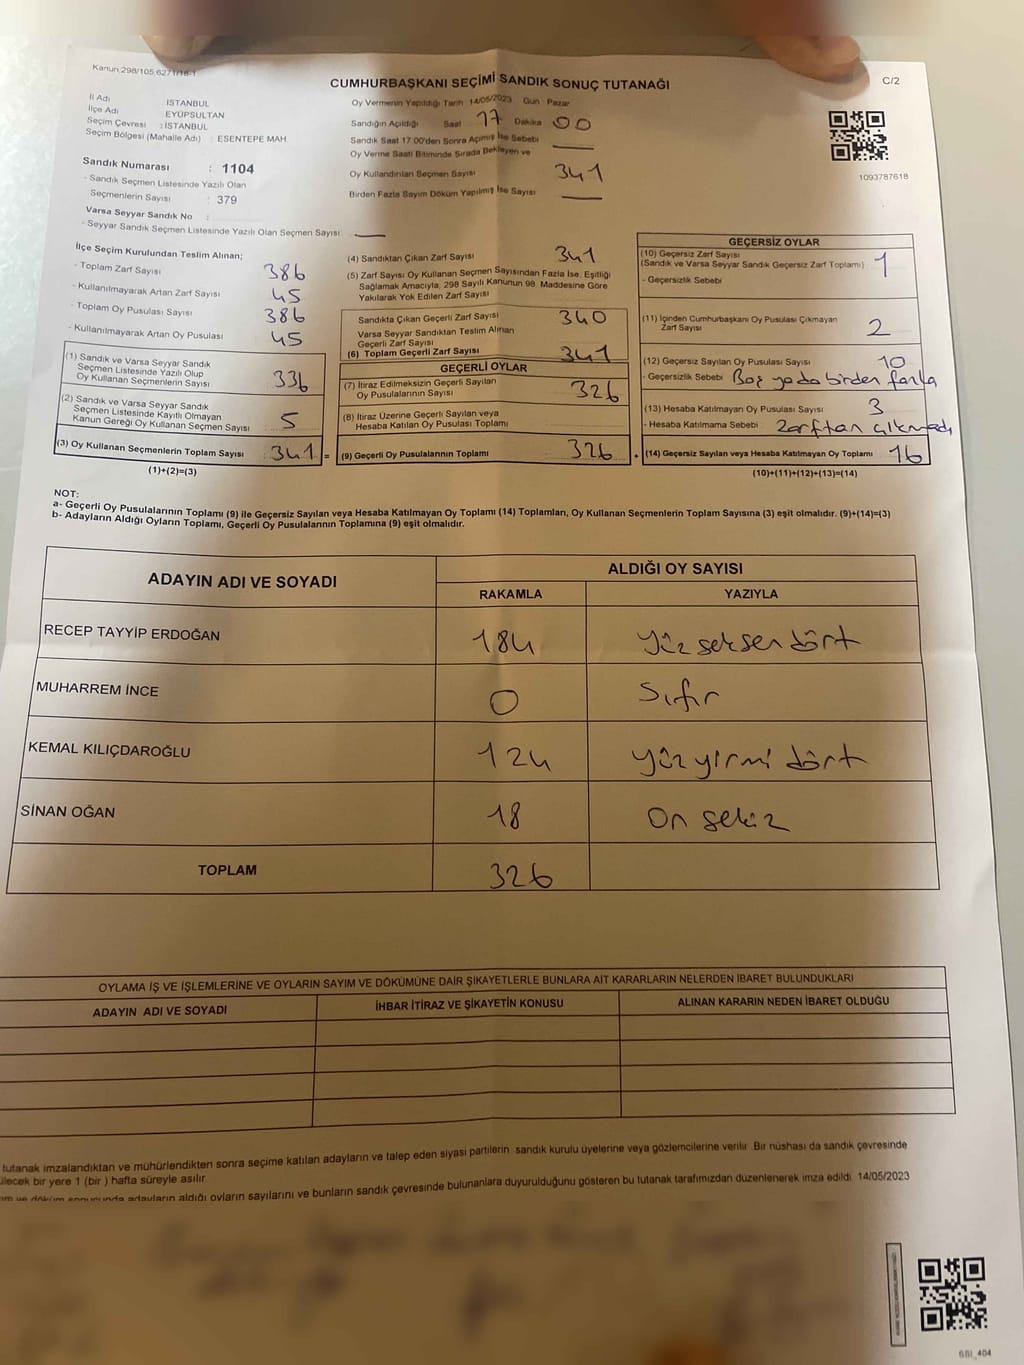 Kanun 298/105,6271/18-1
CUMHURBAŞKANI SEÇİMİ SANDIK SONUÇ TUTANAĞI
C/2
İl Adı İSTANBUL
İlçe Adı EYÜPSULTAN
Seçim Çevresi : İSTANBUL
Seçim Bölgesi (Mahalle Adı) : ESENTEPE MAH
Sandık Numarası : 1104
- Sandık Seçmen Listesinde Yazılı Olan
Seçmenlerin Sayısı : 379
Varsa Seyyar Sandık No :
- Seyyar Sandık Seçmen Listesinde Yazılı Olan Seçmen Sayısı:
Oy Vermenin Yapıldığı Tarih 14/05/2023 Gün : Pazar
Sandığın Açıldığı Saat 17 Dakika 00
Sandık Saat 17:00'den Sonra Açılmış İse Sebebi
Oy Verme Saati Bitiminde Sırada Bekleyen ve
Oy Kullandırılan Seçmen Sayısı 341
Birden Fazla Sayım Döküm Yapılmış İse Sayısı
1093787618
İlçe Seçim Kurulundan Teslim Alınan;
- Toplam Zarf Sayısı 386
- Kullanılmayarak Artan Zarf Sayısı 45
- Toplam Oy Pusulası Sayısı 386
- Kullanılmayarak Artan Oy Pusulası 45
(1) Sandık ve Varsa Seyyar Sandık
Seçmen Listesinde Yazılı Olup
Oy Kullanan Seçmenlerin Sayısı 336
(2) Sandık ve Varsa Seyyar Sandık
Seçmen Listesinde Kayıtlı Olmayan
Kanun Gereği Oy Kullanan Seçmen Sayısı 5
(3) Oy Kullanan Seçmenlerin Toplam Sayısı 341 =
(1)+(2)=(3)
(4) Sandıktan Çıkan Zarf Sayısı 341
(5) Zarf Sayısı Oy Kullanan Seçmen Sayısından Fazla İse, Eşitliği
Sağlamak Amacıyla, 298 Sayılı Kanunun 98. Maddesine Göre
Yakılarak Yok Edilen Zarf Sayısı
Sandıkta Çıkan Geçerli Zarf Sayısı 340
Varsa Seyyar Sandıktan Teslim Alınan
Geçerli Zarf Sayısı
(6) Toplam Geçerli Zarf Sayısı 341
GEÇERLİ OYLAR
(7) İtiraz Edilmeksizin Geçerli Sayılan
Oy Pusulalarının Sayısı 326
(8) İtiraz Üzerine Geçerli Sayılan veya
Hesaba Katılan Oy Pusulası Toplamı
(9) Geçerli Oy Pusulalarının Toplamı 326
GEÇERSİZ OYLAR
(10) Geçersiz Zarf Sayısı
(Sandık ve Varsa Seyyar Sandık Geçersiz Zarf Toplamı) 1
- Geçersizlik Sebebi
(11) İçinden Cumhurbaşkanı Oy Pusulası Çıkmayan
Zarf Sayısı 2
(12) Geçersiz Sayılan Oy Pusulası Sayısı 10
- Geçersizlik Sebebi Boş yada birden fazla
(13) Hesaba Katılmayan Oy Pusulası Sayısı 3
- Hesaba Katılmama Sebebi : Zarftan çıkmadı
(14) Geçersiz Sayılan veya Hesaba Katılmayan Oy Toplamı 16
(10)+(11)+(12)+(13)=(14)
NOT:
a- Geçerli Oy Pusulalarının Toplamı (9) ile Geçersiz Sayılan veya Hesaba Katılmayan Oy Toplamı (14) Toplamları, Oy Kullanan Seçmenlerin Toplam Sayısına (3) eşit olmalıdır. (9)+(14)=(3)
b- Adayların Aldığı Oyların Toplamı, Geçerli Oy Pusulalarının Toplamına (9) eşit olmalıdır.
ADAYIN ADI VE SOYADI
ALDIĞI OY SAYISI
RAKAMLA YAZIYLA
RECEP TAYYİP ERDOĞAN 184 Yüz seksen dört
MUHARREM İNCE 0 Sıfır
KEMAL KILIÇDAROĞLU 124 yüz yirmi dört
SİNAN OĞAN 18 On sekiz
TOPLAM 326
OYLAMA İŞ VE İŞLEMLERİNE VE OYLARIN SAYIM VE DÖKÜMÜNE DAİR ŞİKAYETLERLE BUNLARA AİT KARARLARIN NELERDEN İBARET BULUNDUKLARI
ADAYIN ADI VE SOYADI İHBAR İTİRAZ VE ŞİKAYETİN KONUSU ALINAN KARARIN NEDEN İBARET OLDUĞU
tutanak imzalandıktan ve mühürlendikten sonra seçime katılan adayların ve talep eden siyasi partilerin sandık kurulu üyelerine veya gözlemcilerine verilir. Bir nüshası da sandık çevresinde
bir yere 1 (bir) hafta süreyle asılır.
ve döküm sonucunda adayların aldığı oyların sayılarını ve bunların sandık çevresinde bulunanlara duyurulduğunu gösteren bu tutanak tarafımızdan düzenlenerek imza edildi. 14/05/2023